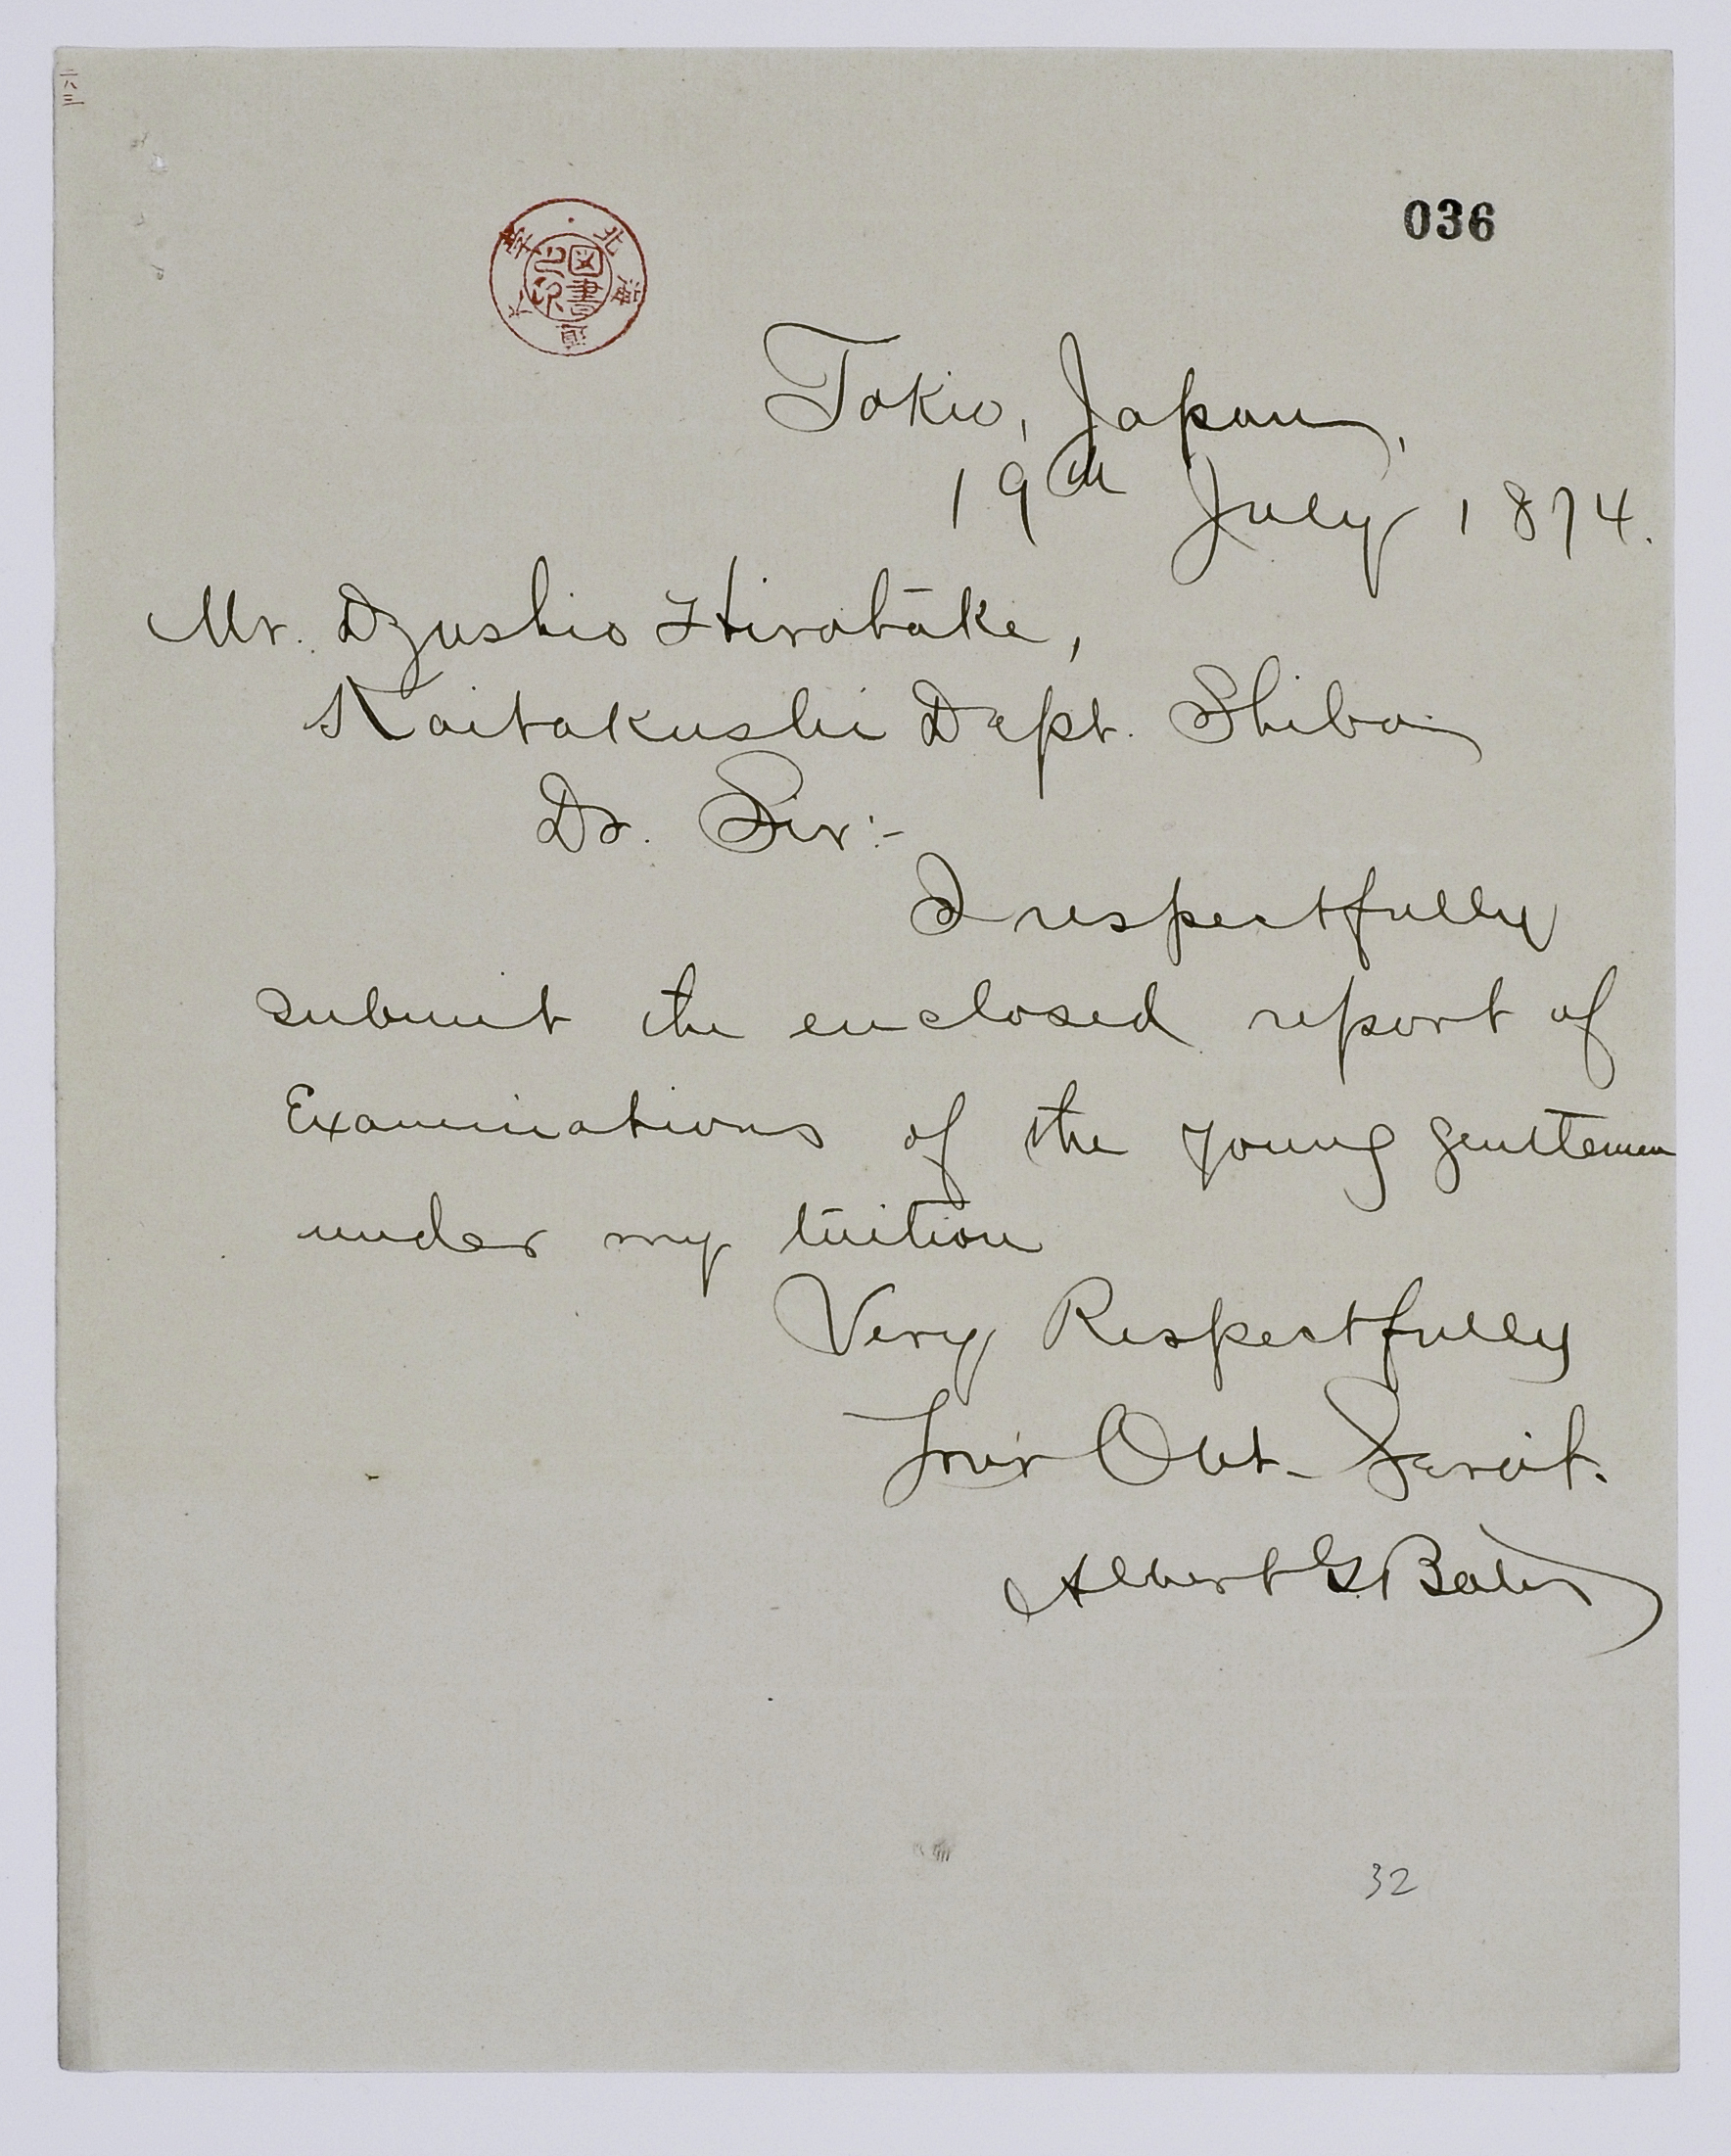 二六三
036
北海道大学
図書之印
Tokio, Japan,
19th July 1874.
Mr. Dzushio Hirotake,
Kaitakushi Dept. Shiba
Dr. Sir:-
I respectfully
submit the enclosed report of
Examinations of the young gentlemen
under my tuition
Very Respectfully
Your Obt. Servt.
Albert G. Bates
32